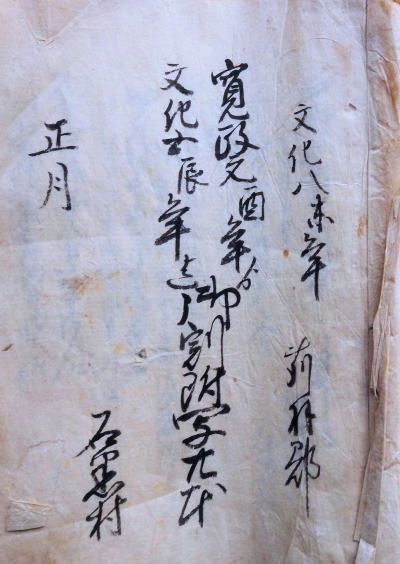 文化八未年
苅羽郡
寛政元酉年ゟ
文化五辰年迄
御割附写廿本
正月
石黒村